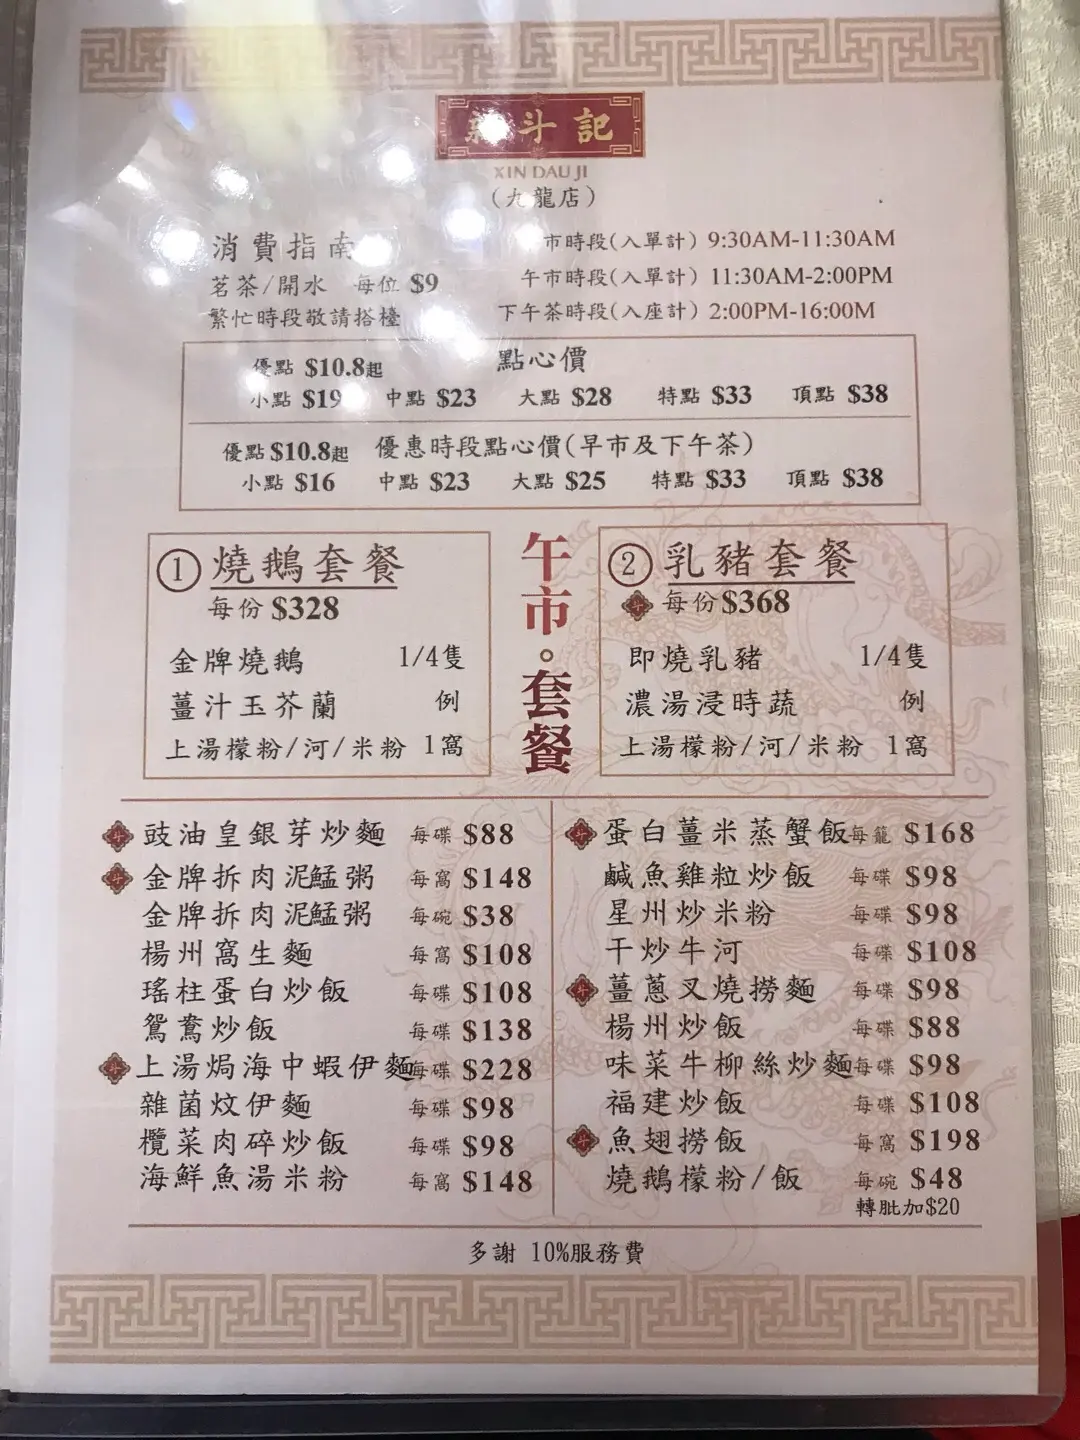 斗記
XIN DAU JI
(九龍店)
消費指南
茗茶/開水 每位 $9
繁忙時段敬請搭檯
市時段(入單計) 9:30AM-11:30AM
午市時段(入單計) 11:30AM-2:00PM
下午茶時段(入座計) 2:00PM-16:00M
優點 $10.8起 點心價
小點 $19 中點 $23 大點 $28 特點 $33 頂點 $38
優點$10.8起 優惠時段點心價(早市及下午茶)
小點 $16 中點 $23 大點 $25 特點 $33 頂點 $38
午市。套餐
1 燒鵝套餐
每份 $328
金牌燒鵝 1/4隻
薑汁玉芥蘭 例
上湯檬粉/河/米粉 1窩
2 乳豬套餐
斗 每份$368
即燒乳豬 1/4隻
濃湯浸時蔬 例
上湯檬粉/河/米粉 1窩
斗 豉油皇銀芽炒麵 每碟 $88
斗 金牌拆肉泥鯭粥 每窩 $148
金牌拆肉泥鯭粥 每碗 $38
楊州窩生麵 每窩 $108
瑤柱蛋白炒飯 每碟 $108
鴛鴦炒飯 每碟 $138
斗 上湯焗海中蝦伊麵每碟 $228
雜菌炆伊麵 每碟 $98
欖菜肉碎炒飯 每碟 $98
海鮮魚湯米粉 每窩 $148
斗 蛋白薑米蒸蟹飯每籠 $168
鹹魚雞粒炒飯 每碟 $98
星州炒米粉 每碟 $98
干炒牛河 每碟 $108
斗 薑蔥叉燒撈麵 每碟 $98
楊州炒飯 每碟 $88
味菜牛柳絲炒麵每碟 $98
福建炒飯 每碟 $108
斗 魚翅撈飯 每窩 $198
燒鵝檬粉/飯 每碗 $48
轉肶加$20
多謝 10%服務費